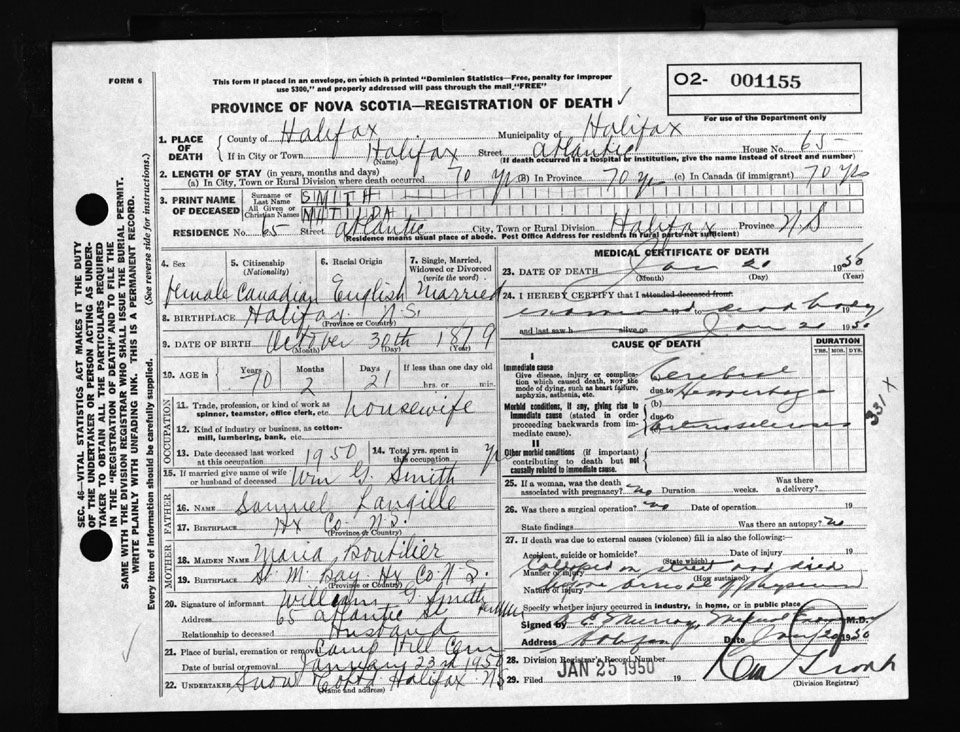 FORM 6
This form if placed in an envelope, on which is printed "Dominion Statistics—Free, penalty for improper
use $300," and properly addressed will pass through the mail "FREE"
O2- 001155
For use of the Department only
PROVINCE OF NOVA SCOTIA—REGISTRATION OF DEATH ✓
1. PLACE OF DEATH County of Halifax Municipality of Halifax
If in City or Town Halifax (Name) Street Atlantic House No. 65
(If death occurred in a hospital or institution, give the name instead of street and number)
2. LENGTH OF STAY (in years, months and days)
(a) In City, Town or Rural Division where death occurred 70 yrs (B) In Province 70 yrs (c) In Canada (if immigrant) 70 yrs
3. PRINT NAME OF DECEASED Surname or Last Name SMITH
All Given or Christian Names MATILDA
RESIDENCE No. 65 Street Atlantic City, Town or Rural Division Halifax Province N.S
(Residence means usual place of abode. Post Office Address for residents in rural parts not sufficient)
4. Sex 5. Citizenship (Nationality) 6. Racial Origin 7. Single, Married, Widowed or Divorced (write the word)
female Canadian English Married
8. BIRTHPLACE Halifax N.S.
(Province or Country)
9. DATE OF BIRTH October 30th 1879
(Month) (Day) (Year)
10. AGE in Years 70 Months 2 Days 21 If less than one day old
hrs. or min.
OCCUPATION
11. Trade, profession, or kind of work as
spinner, teamster, office clerk, etc. housewife
12. Kind of industry or business, as cotton-
mill, lumbering, bank, etc.
13. Date deceased last worked
at this occupation 1950
14. Total yrs. spent in
this occupation
15. If married give name of wife
or husband of deceased Wm G. Smith
FATHER
16. NAME Samuel Langille
17. BIRTHPLACE Hx Co. N.S.
(Province or Country)
MOTHER
18. MAIDEN NAME Maria Boutilier
19. BIRTHPLACE St. M. Bay Hx Co. N.S.
(Province or Country)
20. Signature of informant William G Smith
Address 65 Atlantic St
Relationship to deceased Husband
21. Place of burial, cremation or removal Camp Hill Cem
Date of burial or removal January 23rd 1950
22. UNDERTAKER Snow Co Ltd Halifax NS
(Name and address)
MEDICAL CERTIFICATE OF DEATH
23. DATE OF DEATH Jan 20 1950
(Month) (Day) (Year)
24. I HEREBY CERTIFY that I attended deceased from:
examined dead body 19
and last saw h alive on Jan 20 1950
CAUSE OF DEATH DURATION
YRS. MOS. DYS.
I
Immediate cause
Give disease, injury or complica-
tion which caused death, NOT the
mode of dying, such as heart failure,
asphyxia, asthenia, etc.
Cerebral
due to Hemorrhage
Morbid conditions, if any, giving rise to
immediate cause (stated in order
proceeding backwards from im-
mediate cause).
(b)
due to
Arteriosclerosis
331 X
II
Other morbid conditions (if important)
contributing to death but not
causally related to immediate cause.
25. If a woman, was the death
associated with pregnancy? no Duration weeks. Was there
a delivery?
26. Was there a surgical operation? no Date of operation 19
State findings Was there an autopsy? no
27. If death was due to external causes (violence) fill in also the following:
Accident, suicide or homicide? (State which) Date of injury 19
Manner of injury Collapsed on street and died
(How sustained)
Nature of injury before arrival of physician
Specify whether injury occurred in industry, in home, or in public place
Signed by Murray, Medical M.D.
Address Halifax Date Jan 20 1950
28. Division Registrar's Record Number
29. Filed JAN 25 1950 19
(Division Registrar)
SEC. 46—VITAL STATISTICS ACT MAKES IT THE DUTY
OF THE UNDERTAKER OR PERSON ACTING AS UNDER-
TAKER TO OBTAIN ALL THE PARTICULARS REQUIRED
IN THE "REGISTRATION OF DEATH" AND TO FILE THE
SAME WITH THE DIVISION REGISTRAR WHO SHALL ISSUE THE BURIAL PERMIT.
WRITE PLAINLY WITH UNFADING INK. THIS IS A PERMANENT RECORD.
Every item of information should be carefully supplied. (See reverse side for instructions.)